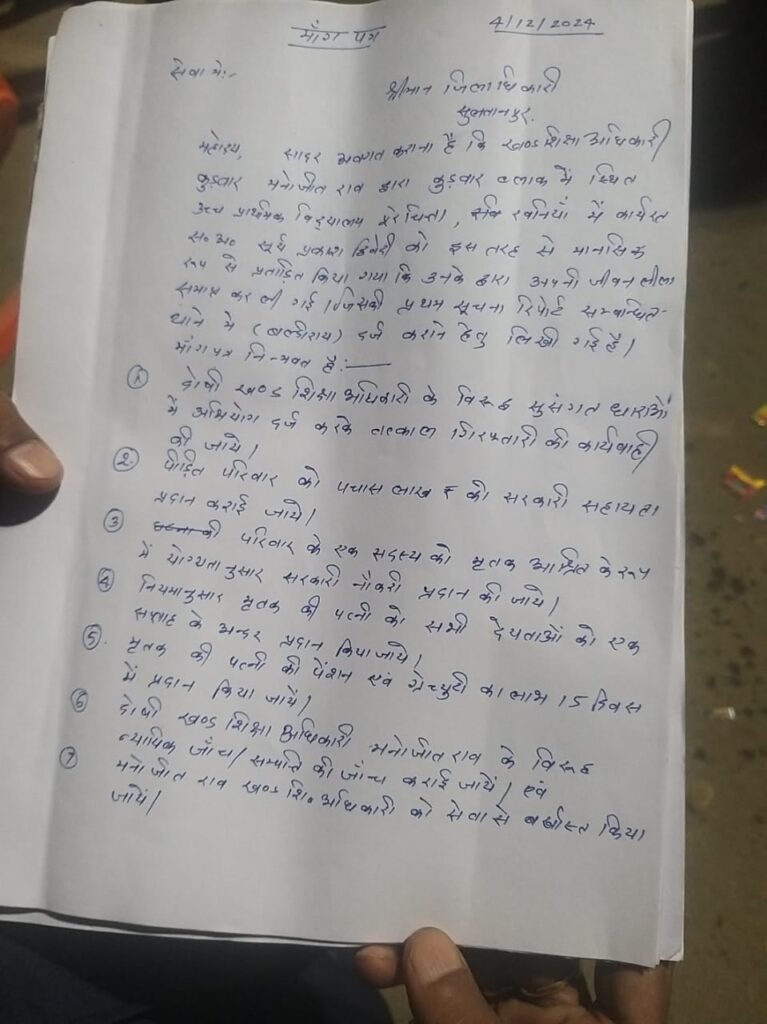 माँग पत्र
4/12/2024
सेवा में:-
श्रीमान जिलाधिकारी
सुलतानपुर.
महोदय, सादर अवगत कराना है कि खण्ड शिक्षा अधिकारी
कुड़वार मनोजीत राव द्वारा कुड़वार ब्लाक में स्थित
उच्च प्राथमिक विद्यालय में कार्यरत
स०अ० सूर्य प्रकाश द्विवेदी को इस तरह से मानसिक
रूप से प्रताड़ित किया गया कि उनके द्वारा अपनी जीवन लीला
समाप्त कर ली गई। जिसकी प्रथम सूचना रिपोर्ट सम्बन्धित-
थाने में (बल्दीराय) दर्ज कराने हेतु लिखी गई है।
माँगपत्र निम्नवत है:—
① दोषी खण्ड शिक्षा अधिकारी के विरूद्ध सुसंगत धाराओं
में अभियोग दर्ज करके तत्काल गिरफ्तारी की कार्यवाही
की जाये।
2. पीड़ित परिवार को पचास लाख ₹ की सरकारी सहायता
प्रदान कराई जाये।
③ परिवार के एक सदस्य को मृतक आश्रित के रूप
में योग्यतानुसार सरकारी नौकरी प्रदान की जाये।
④ नियमानुसार मृतक की पत्नी को सभी देयताओं को एक
सप्ताह के अन्दर प्रदान किया जाये।
5. मृतक की पत्नी की पेंशन एवं ग्रेच्युटी का लाभ 15 दिवस
में प्रदान किया जाये।
⑥ दोषी खण्ड शिक्षा अधिकारी मनोजीत राव के विरूद्ध
न्यायिक जाँच/सम्पत्ति की जाँच कराई जाये। एवं
⑦ मनोजीत राव खण्ड शि० अधिकारी को सेवा से बर्खास्त किया
जाये।